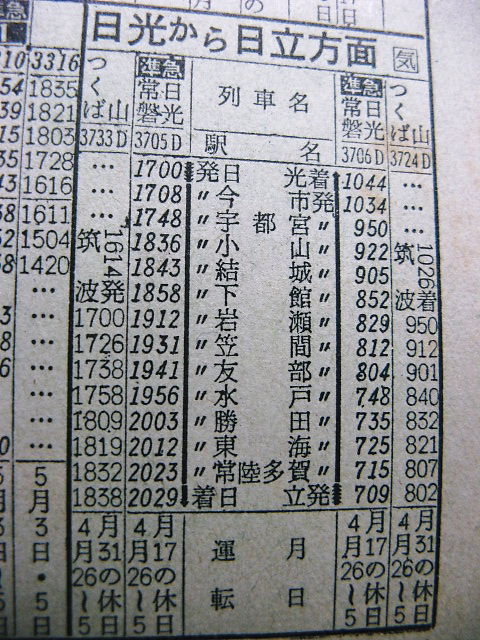 準急
日光から日立方面 気
3316 つくば山 準急 常日磐光 列車名 準急 常日磐光 つくば山
1835 3733D 3705D 駅名 3706D 3724D
1821 … 1700 発日光着 1044 …
1803 … 1708 〃今市発 1034 …
1728 … 1748 〃宇都宮〃 950 …
1616 筑波発 1614 1836 〃小山〃 922 筑波着 1026
1611 1843 〃結城〃 905
1504 1858 〃下館〃 852
1420 1700 1912 〃岩瀬〃 829 950
… 1726 1931 〃笠間〃 812 912
… 1738 1941 〃友部〃 804 901
… 1758 1956 〃水戸〃 748 840
… 1809 2003 〃勝田〃 735 832
… 1819 2012 〃東海〃 725 821
… 1832 2023 〃常陸多賀〃 715 807
… 1838 2029 着日立発 709 802
5月3日・5日 4月31の休 月26〜5日 4月17の休 月26〜5日 運転月日 4月17の休 月26〜5日 4月31の休 月26〜5日